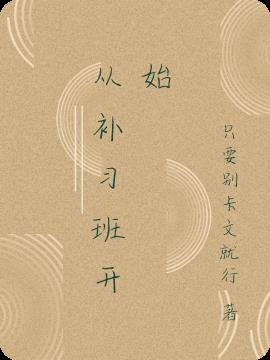 从补习班开
始
只要别卡文就行 著